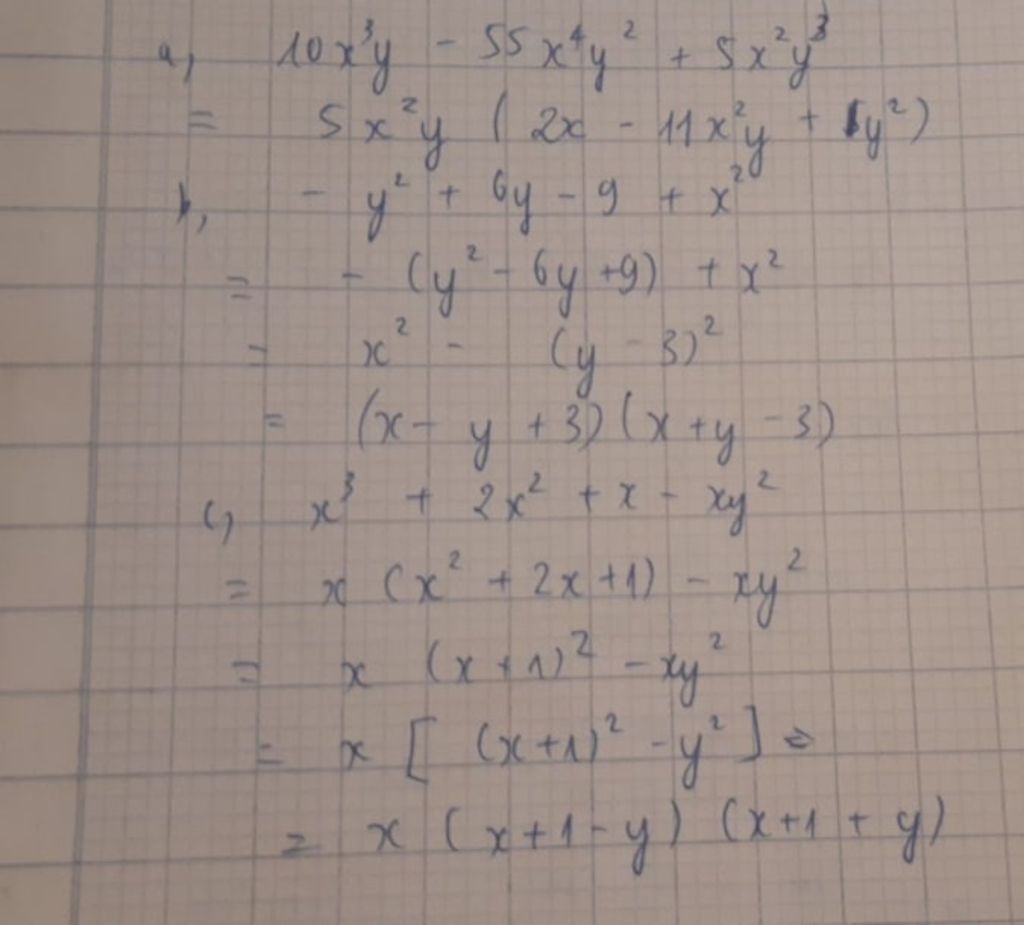 a, 10x³y - 55x⁴y² + 5x²y³
= 5x²y (2x - 11x²y + 1y²)
b, - y² + 6y - 9 + x²
= - (y² - 6y + 9) + x²
= x² - (y - 3)²
= (x - y + 3)(x + y - 3)
c, x³ + 2x² + x - xy²
= x (x² + 2x + 1) - xy²
= x (x + 1)² - xy²
= x [ (x + 1)² - y² ] =
= x (x + 1 - y) (x + 1 + y)